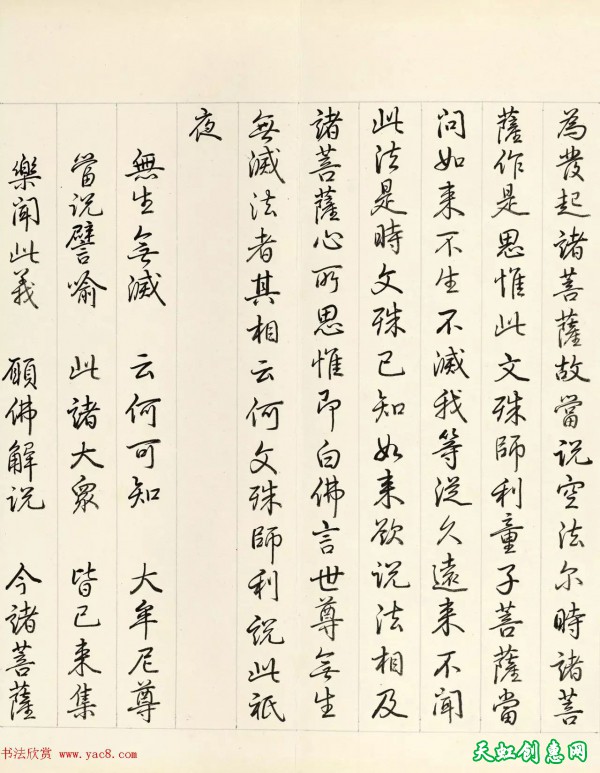 為發起諸菩薩故當说空法尔時諸菩
薩作是思惟此文殊師利童子菩薩當
问如来不生不滅我等從久遠来不聞
此法是時文殊已知如来欲说法相及
諸菩薩心所思惟即白佛言世尊無生
無滅法者其相云何文殊師利说此祇
夜
無生無滅 云何可知 大牟尼尊
當说譬喻 此諸大眾 皆已来集
樂聞此義 願佛解说 今諸菩薩
书法欣赏 www.yac8.com
天虹创惠网